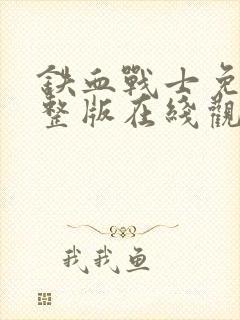 鉄血戰士免
整版在綫觀
我我鱼